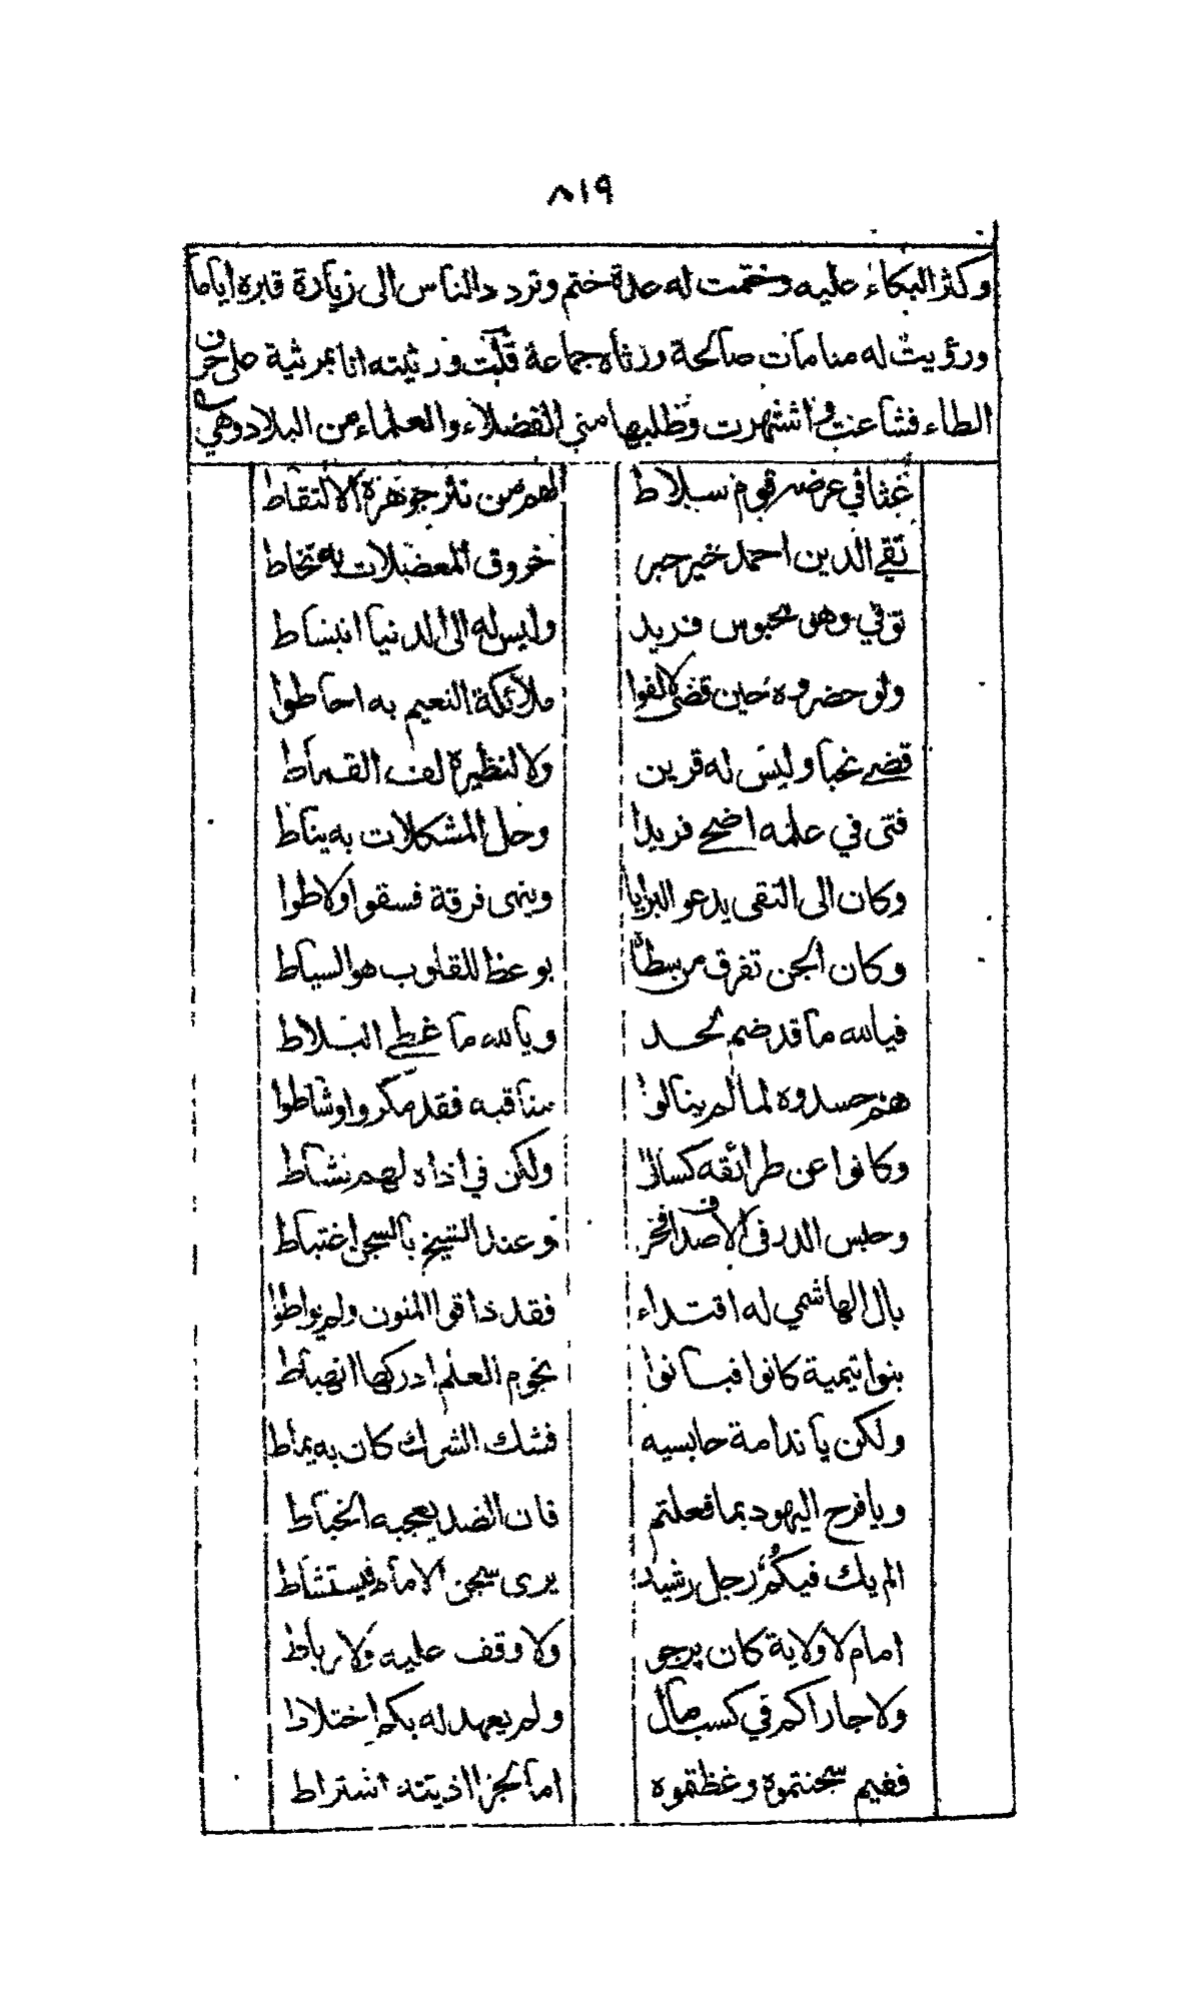 ٨١٩
وكثر البكاء عليه وختمت له عدة ختم وتردد الناس الى زيارة قبره اياما
ورؤيت له منامات صالحة ورثاه جماعة قلت ورثيته انا بمرثية على حرف
الطاء فشاعت واشتهرت وطلبها مني الفضلاء والعلماء من البلاد وهي
عثا في عرضه قوم سلاط لهم من نثر جوهره التقاط
تقي الدين احمد خير حبر خروق المعضلات به تخاط
توفي وهو محبوس فريد وليس له الى الدنيا انبساط
ولو حضروه حين قضى لالفوا ملائكة النعيم به احاطوا
قضى نحبا وليس له قرين ولا لنظيره لف القماط
فتى في علمه اضحى فريدا وحل المشكلات به يناط
وكان الى التقى يدعو البرايا وينهى فرقة فسقوا ولاطوا
وكان الجن تفرق من سطاه بوعظ للقلوب هو السياط
فيالله ما قد ضم لحد ويالله ما غطى البلاط
هم حسدوه لما لم ينالوا مناقبه فقد مكروا وشاطوا
وكانوا عن طرائقه كسالى ولكن في اذاه لهم نشاط
وحبس الدر في الاصداف فخر وعند الشيخ بالسجن اغتباط
بال الهاشمي له اقتداء فقد ذاقوا المنون ولم يواطوا
بنوا تيمية كانوا فبانوا نجوم العلم ادركها انهباط
ولكن يا ندامة حابسيه فشك الشرك كان به يماط
ويا فرح اليهود بما فعلتم فان الضد يعجبه الخباط
الم يك فيكم رجل رشيد يرى سجن الامام فيستشاط
امام لا ولاية كان يرجو ولا وقف عليه ولا رباط
ولا جاراكم في كسب مال ولم يعهد له بكم اختلاط
ففيم سجنتموه وغظتموه اما لجزا اذيته اشتراط